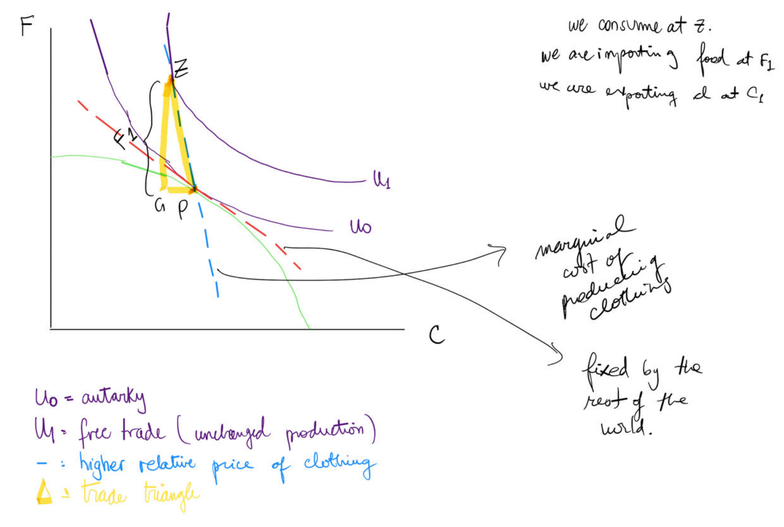 F
we consume at Z.
we are importing food at F1
we are exporting cl at C1
Z
F1
G P
U1
U0
C
marginal
cost of
producing
clothing
fixed by the
rest of the
world.
U0 = autarky
U1 = free trade (unchanged production)
- : higher relative price of clothing
: trade triangle